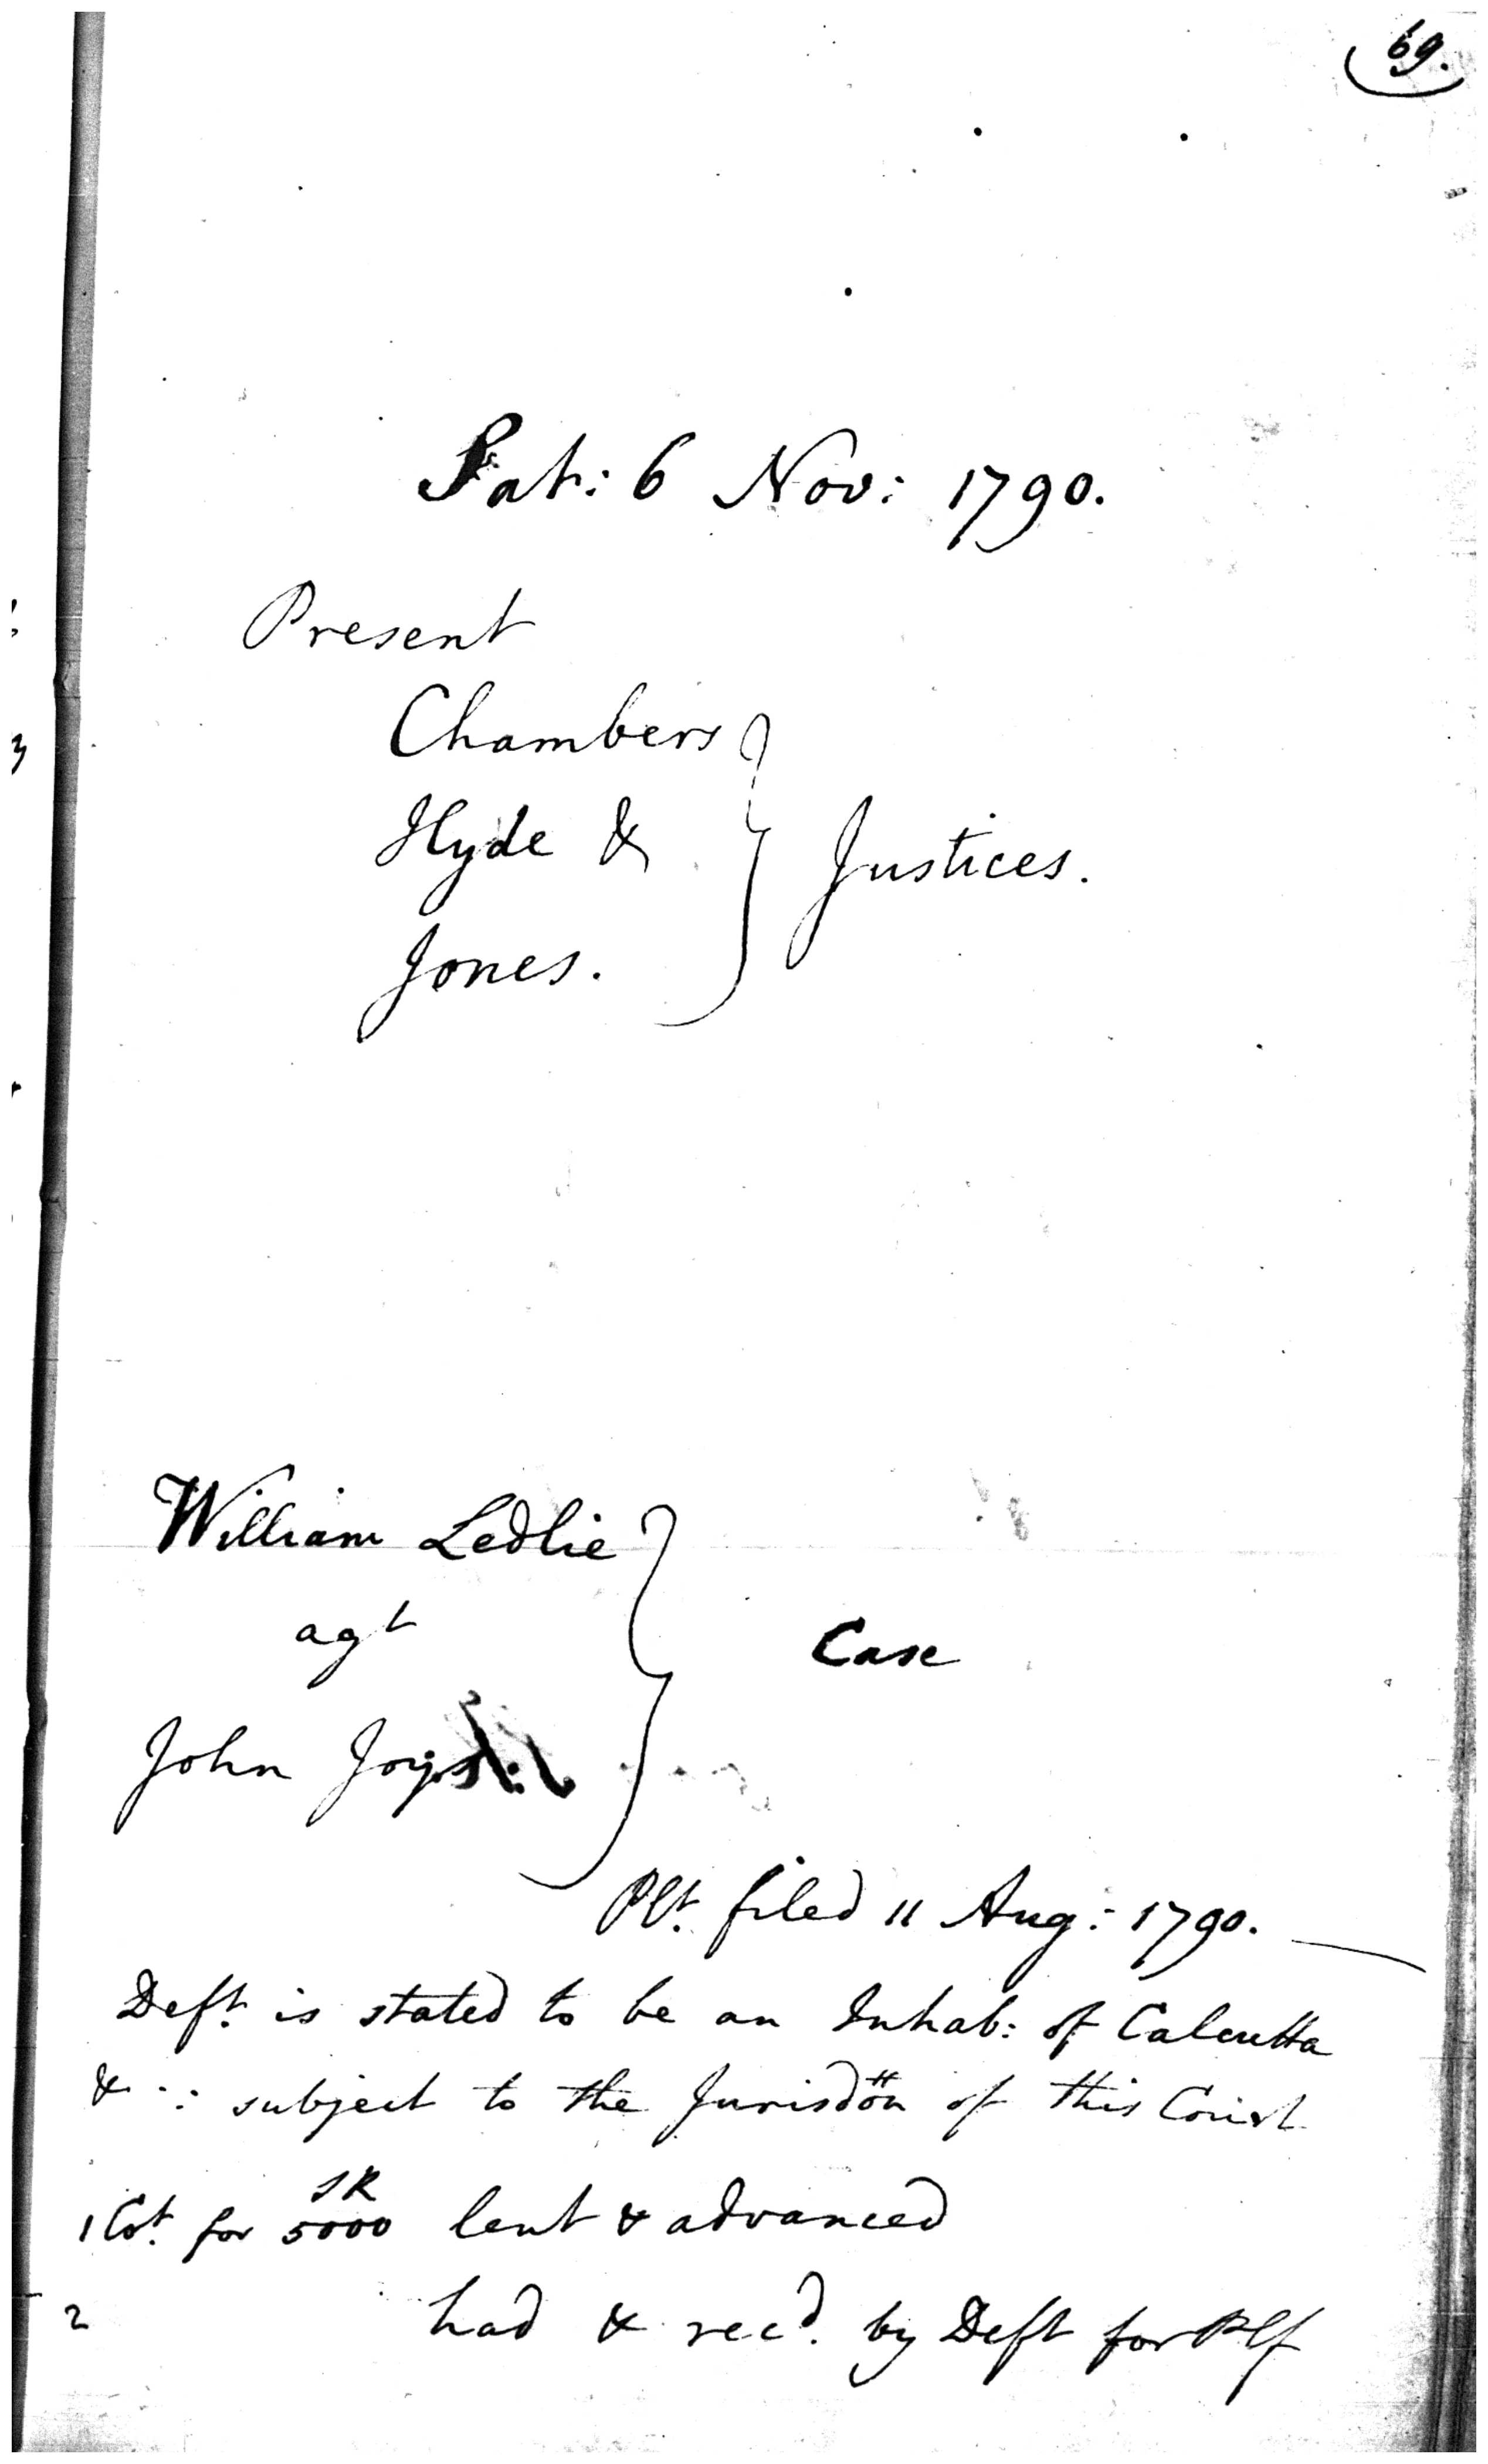 69.
Sat: 6 Nov: 1790.
Present
Chambers
Hyde &
Justices.
Jones.
William Ledlie
agt
Case
John
Plt. filed 11 Aug: 1790.
Deft. is stated to be an Inhab: of Calcutta
& ∴ subject to the Jurisdōn of this Court
SR
1 Ct. for 5000 lent & advanced
2 had & recd. by Deft for Plf